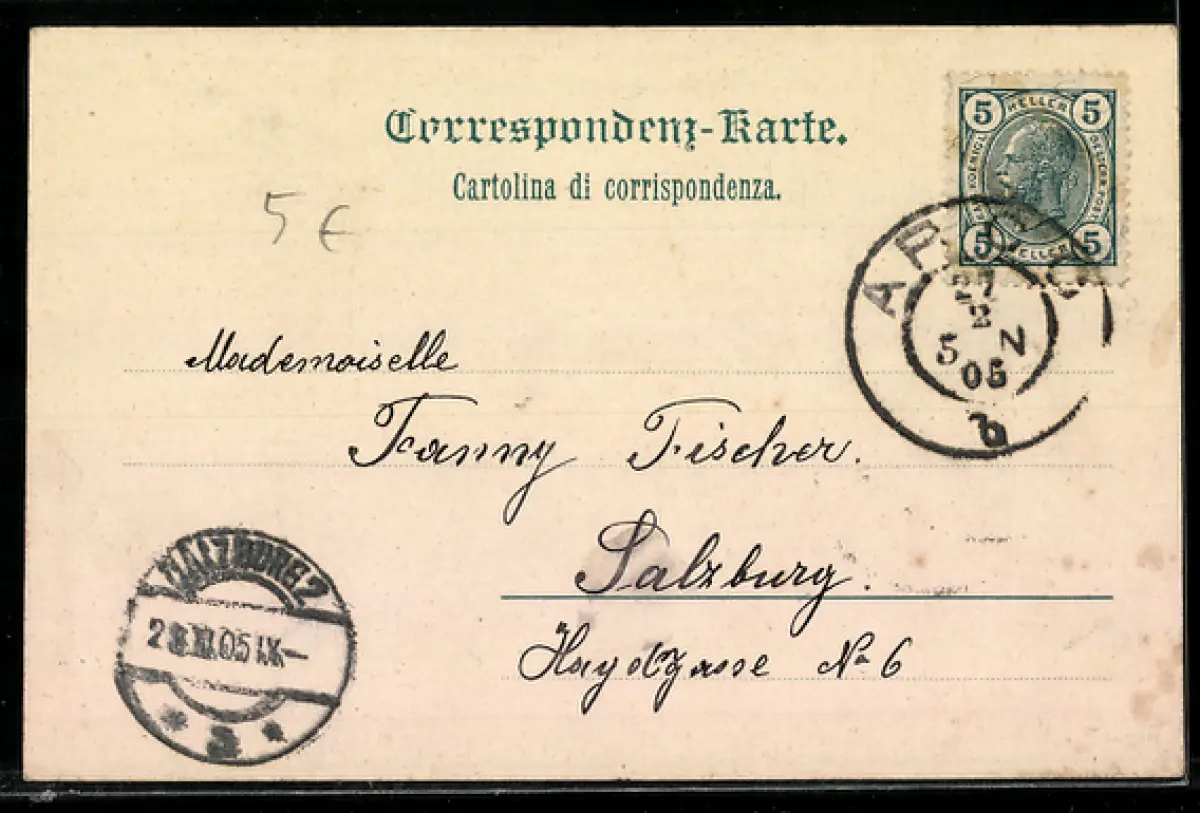 Correspondenz-Karte.
Cartolina di corrispondenza.
5 HELLER 5
5 HELLER 5
5 €
27
2
5 N
05
b
Mademoiselle
Fanny Fischer.
Salzburg.
Haydngasse No 6
SALZBURG 2
05 IX
a